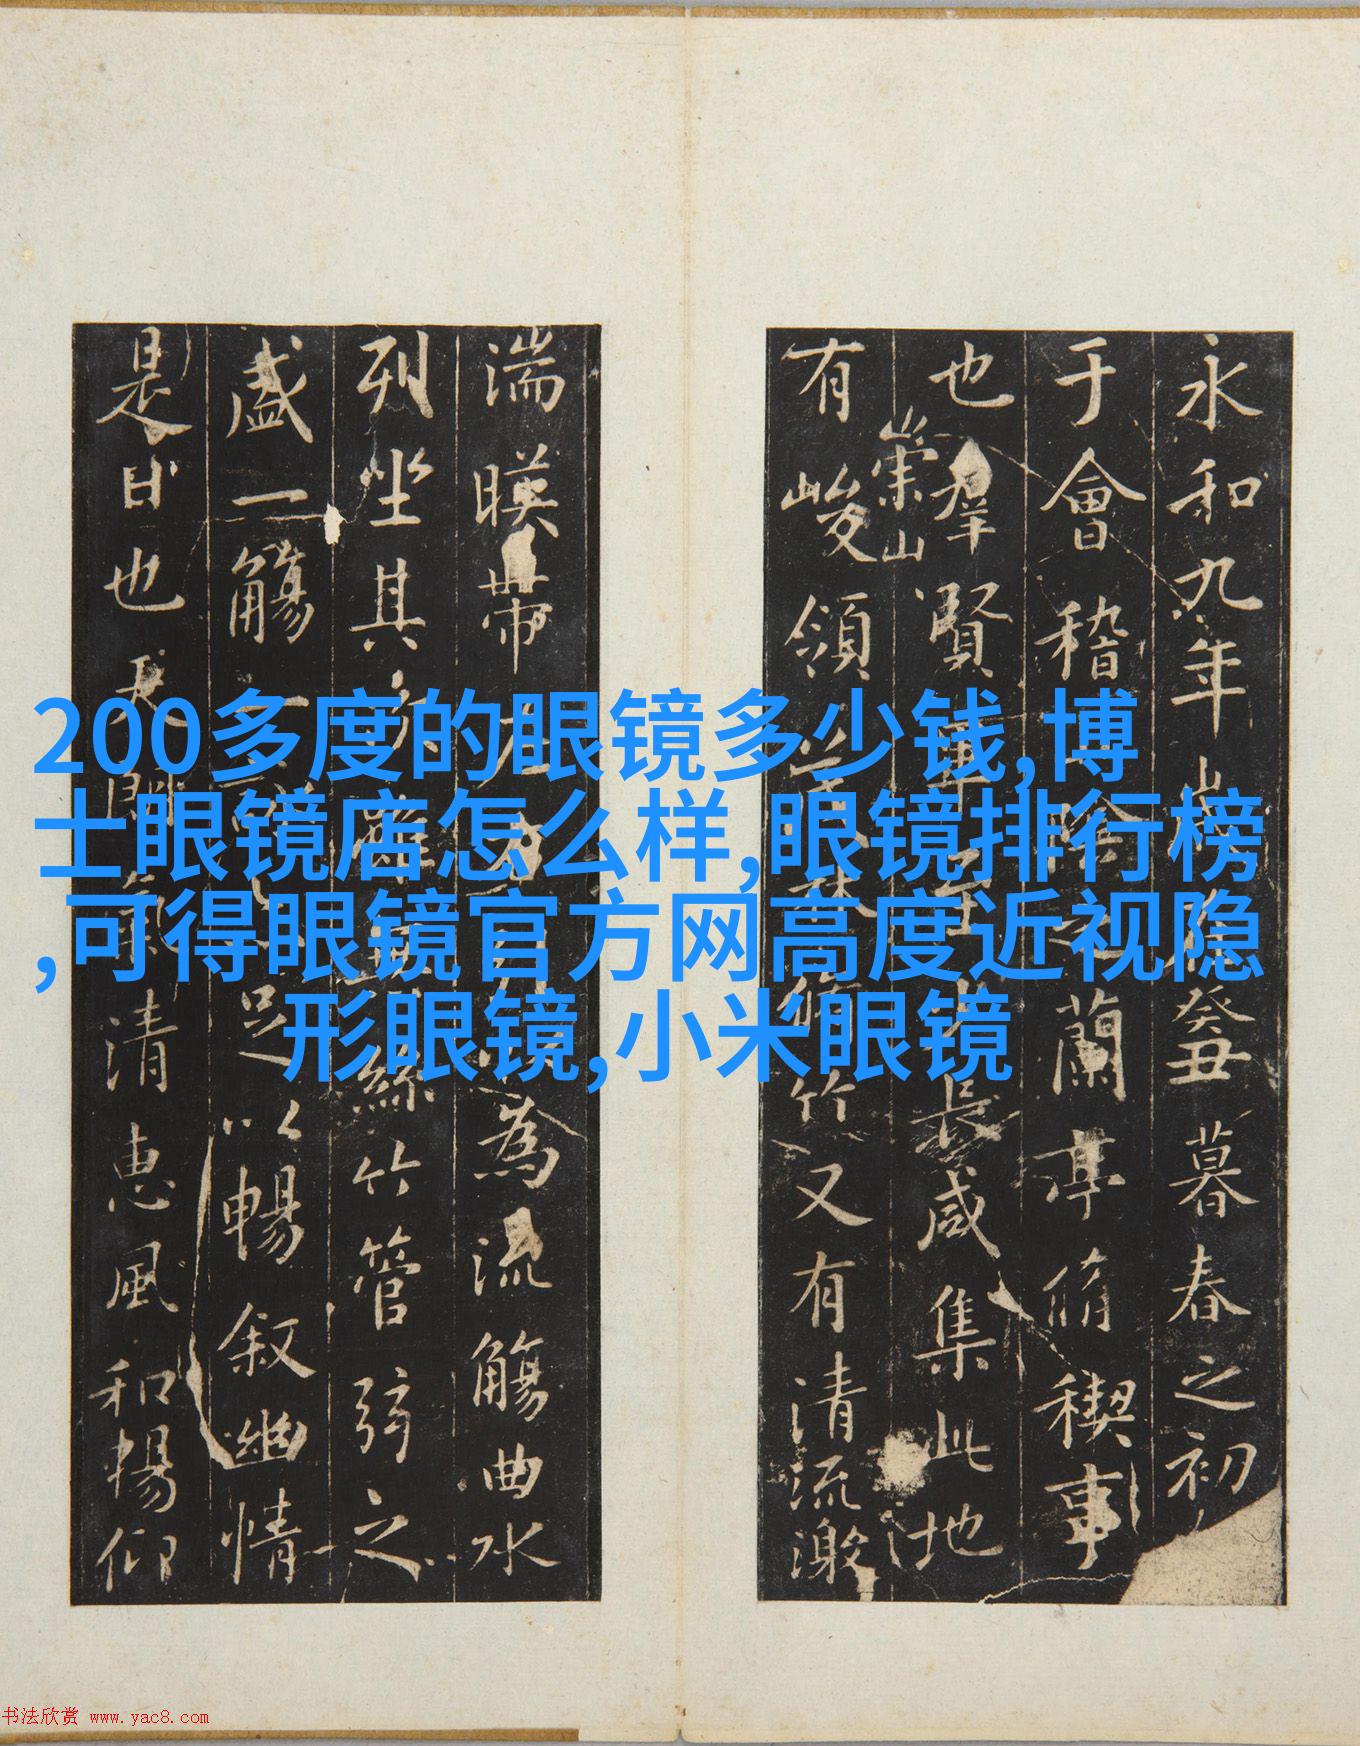 200多度的眼镜多少钱,博
士眼镜店怎么样,眼镜排行榜
,可得眼镜官方网高度近视隐
形眼镜,小米眼镜
永和九年癸丑暮春之初
于會稽蘭亭脩稧事
也羣賢長咸集此地
崇山
有峻領竹又有清流激
湍暎帶為流觴曲水
列坐其絲竹管弦之
盛一觴一足以暢敘幽情
是日也天清惠風和暢仰
书法欣赏 www.yac8.com